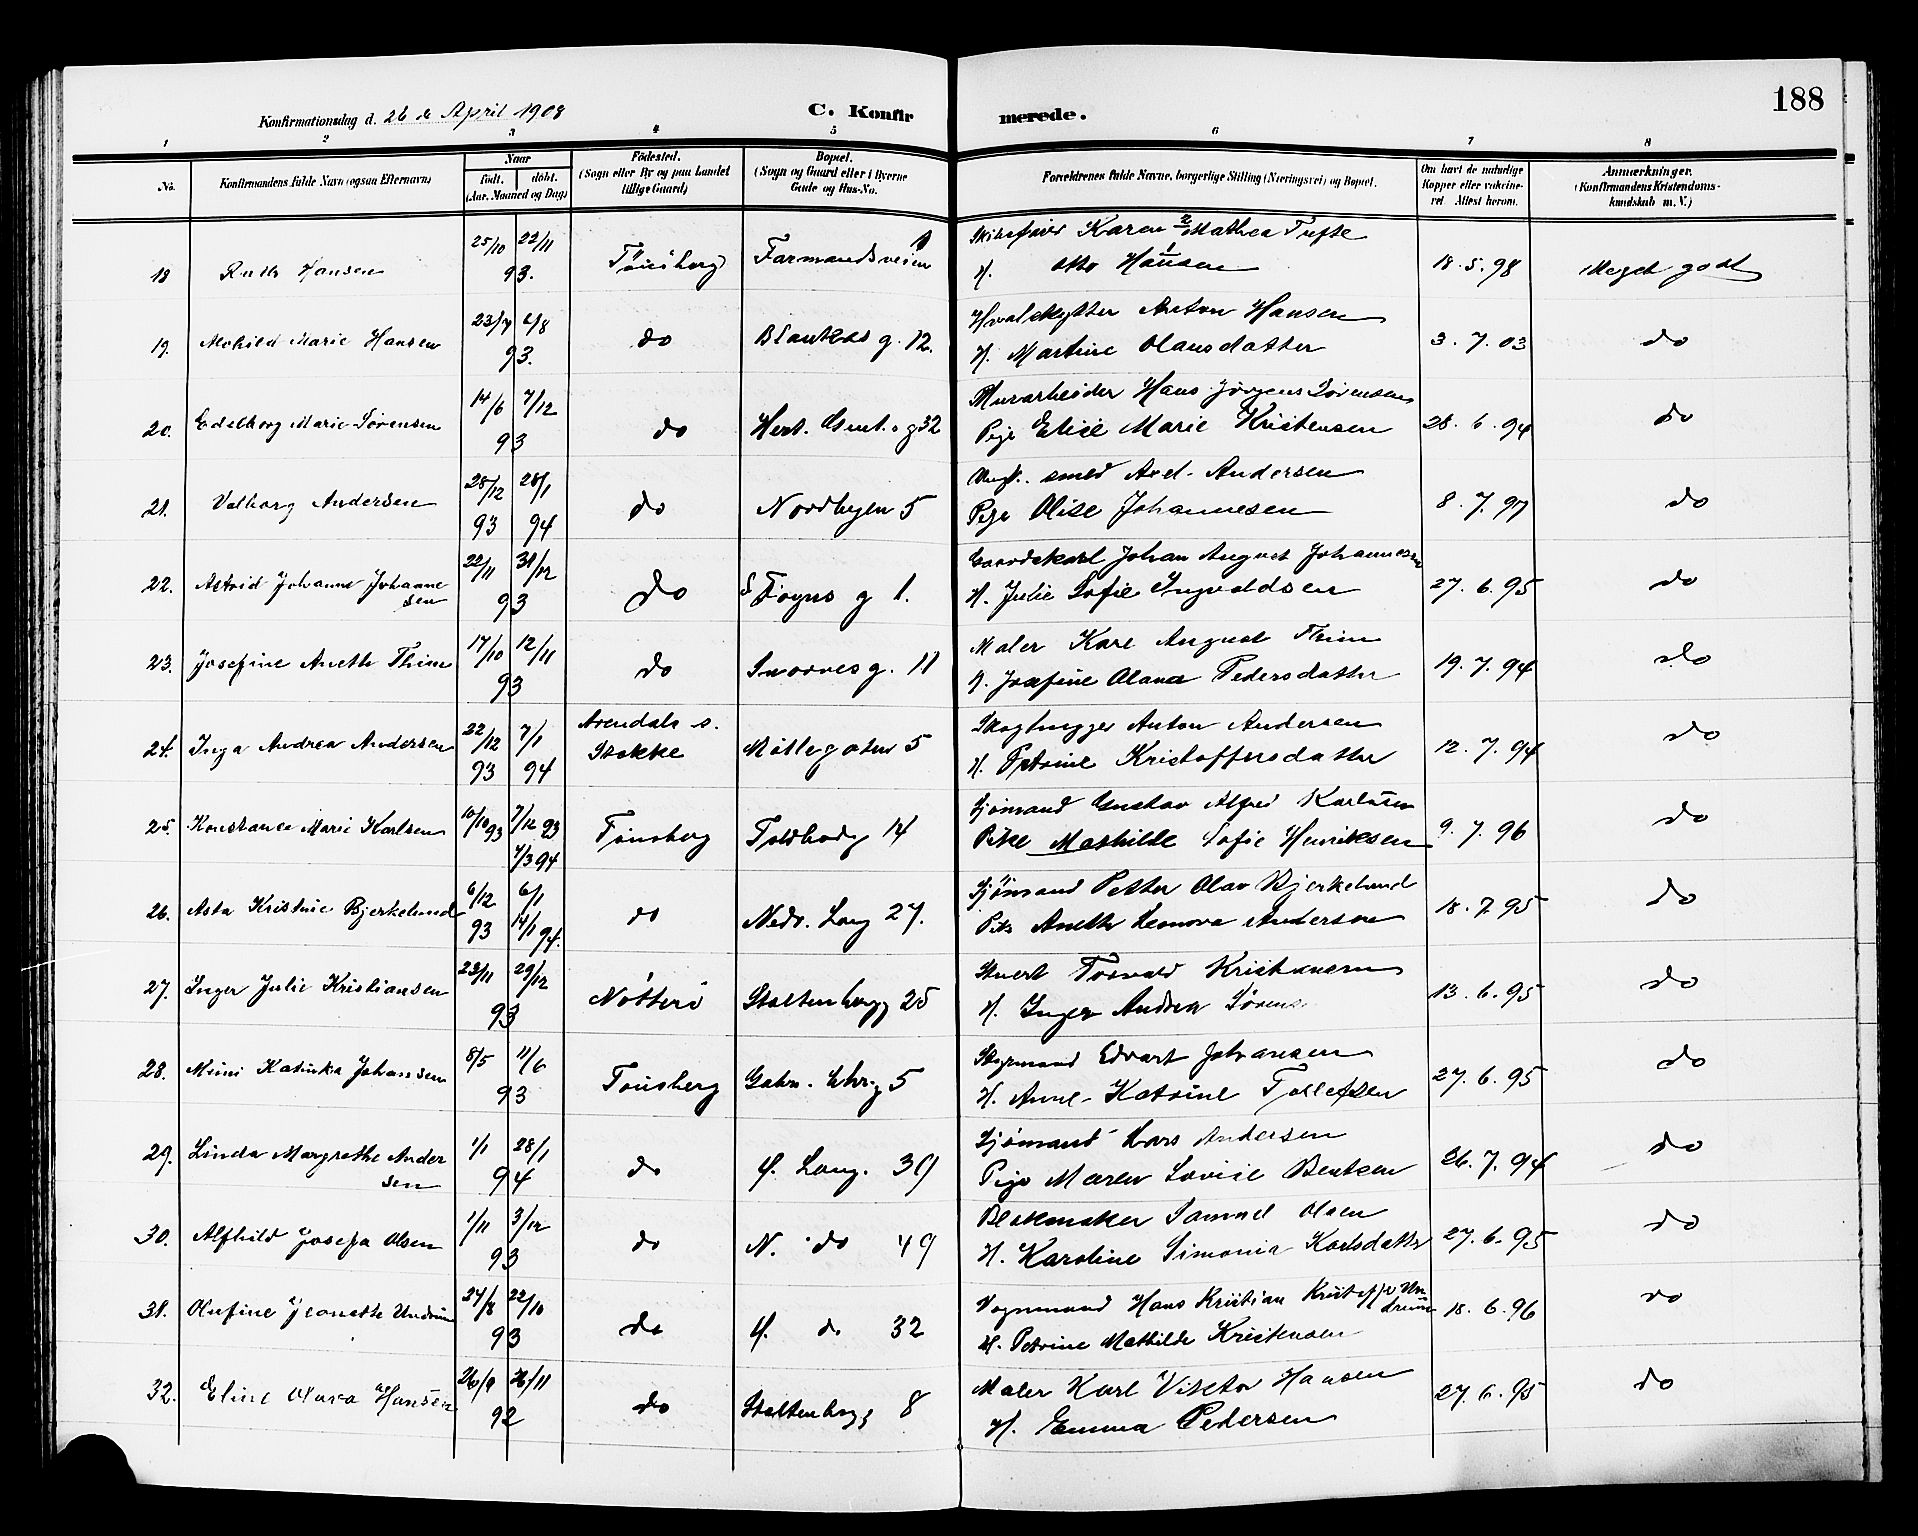 188
Konfirmationsdag d. 26 de April 1908 C. Konfirmerede.
1 2 3 4 5 6 7 8
No. Konfirmandens fulde Navn (ogsaa Efternavn) Naar födt. döbt. (Aar. Maaned og Dag) Födested. (Sogn eller By og paa Landet tillige Gaard) Bopæl. (Sogn og Gaard eller i Byerne Gade og Hus-No. Forældrenes fulde Navne, borgerlige Stilling (Næringsvei) og Bopæl. Om havt de naturlige Kopper eller vaccineret. Attest herom. Anmærkninger. (Konfirmandens Kristendomskundskab m. V.)
18 Ruth Hansen 25/10 22/11 93. Tönsberg Farmandsveien Skibsförer Karen Mathea Tufte
H. Otto Hansen 18.5.98 Meget godt
19. Marie Hansen 23/7 6/8 93. do g. 12. Hvalskytter Anton Hansen
H. Martine Olausdatter 3.7.03 do
20. Edelborg Marie Sörensen 14/6 7/12 93 do Hert. Gut. g 32 Murarbeider Hans Jörgen Sörensen
Pige Elise Marie Kristensen 28.6.94 do
21. Valborg Andersen 28/12 93 28/1 94 do Nordbyen 5 smed Axel Andersen
Pige Olise Johannesen 8.7.97 do
22. Astrid Johanne Johanne
sen 22/11 31/12 93 do g 1. Gaardskarl Johan August Johannesen
H. Julie Sofie Ingvaldsen 27.6.95 do
23. Josefine Aneth Thim 17/10 12/11 93 do Snorresg. 11 Maler Karl August Thim
H. Josefine Olava Pedersdatter 19.7.94 do
24. Inga Andrea Andersen 22/12 93 7/1 94 Arendals s.
Stokke Möllegaten 5 Skoghugger Anton Andersen
H. Petrine Kristoffersdatter 12.7.94 do
25. Konstance Marie Karlsen 10/10 93 7/12 93
7/3 94 Tönsberg Toldbodg 14 Sjömand Gustav Alfred Karlsen
Pike Mathilde Sofie Henriksen 9.7.96 do
26. Asta Kristine Bjerkelund 6/12 93 6/1
14/1 94. do Nedr. Lang 27. Sjömand Petter Olav Bjerkelund
Pike Anette Leonora Andersen 18.7.95 do
27. Inger Julie Kristiansen 23/11 29/12 93 Nötterö Stoltenbergg 25 Stuert Torvald Kristiansen
H. Inger Andrea Sörens 13.6.95 do
28. Mimi Katinka Johansen 8/5 11/6 93 Tönsberg Gabr. Chr.g 5 Styrmand Edvart Johansen
H. Anne Katrine Tollefsen 27.6.95 do
29. Linda Margrethe Ander
sen 1/1 28/1 94 do Ö. Lang. 39 Sjömand Lars Andersen
Pige Maren Lovise Bentsen 26.7.94 do
30. Alfhild Josefa Olsen 1/11 3/12 93 do N. do 49 Blokmaker Samuel Olsen
H. Karoline Simonia Karlsdatter 27.6.95 do
31. Olufine Jeanette Undrum 27/8 22/10 93 do Ö. do 32 Vognmand Hans Kristian Kristoffer Un
drum
H. Petrine Mathilde Kristensen 18.6.96 do
32. Eline Olava Hansen 26/9 26/11 92 do Stoltenbergg 8 Maler Karl Viktor Hansen
H. Emma Pedersen 27.6.95 do